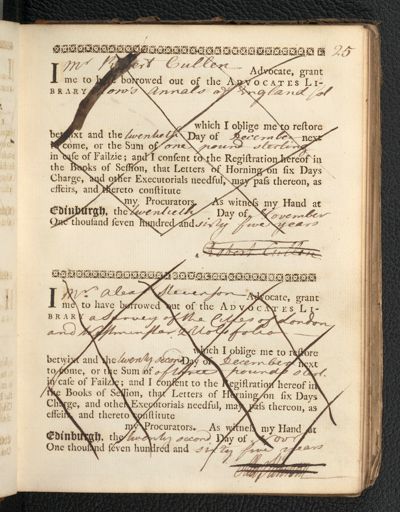 25
I Mr Robert Cullen Advocate, grant
me to have borrowed out of the ADVOCATES LI-
BRARY Stow's Annals of England
which I oblige me to restore
betwixt and the twentieth Day of December next
to come, or the Sum of one pound sterling
in case of Failzie; and I consent to the Registration hereof in
the Books of Session, that Letters of Horning on six Days
Charge, and other Executorials needful, may pass thereon, as
effeirs, and thereto constitute
my Procurators. As witness my Hand at
Edinburgh, the twentieth Day of November
One thousand seven hundred and sixty five years
Robert Cullen
I Mr Alexr Stevenson Advocate, grant
me to have borrowed out of the ADVOCATES LI-
BRARY a Survey of the Cities of London
and Westminster folio
which I oblige me to restore
betwixt and the twenty second Day of December next
to come, or the Sum of three pounds
in case of Failzie; and I consent to the Registration hereof in
the Books of Session, that Letters of Horning on six Days
Charge, and other Executorials needful, may pass thereon, as
effeirs, and thereto constitute
my Procurators. As witness my Hand at
Edinburgh, the twenty second Day of Novr
One thousand seven hundred and sixty five years